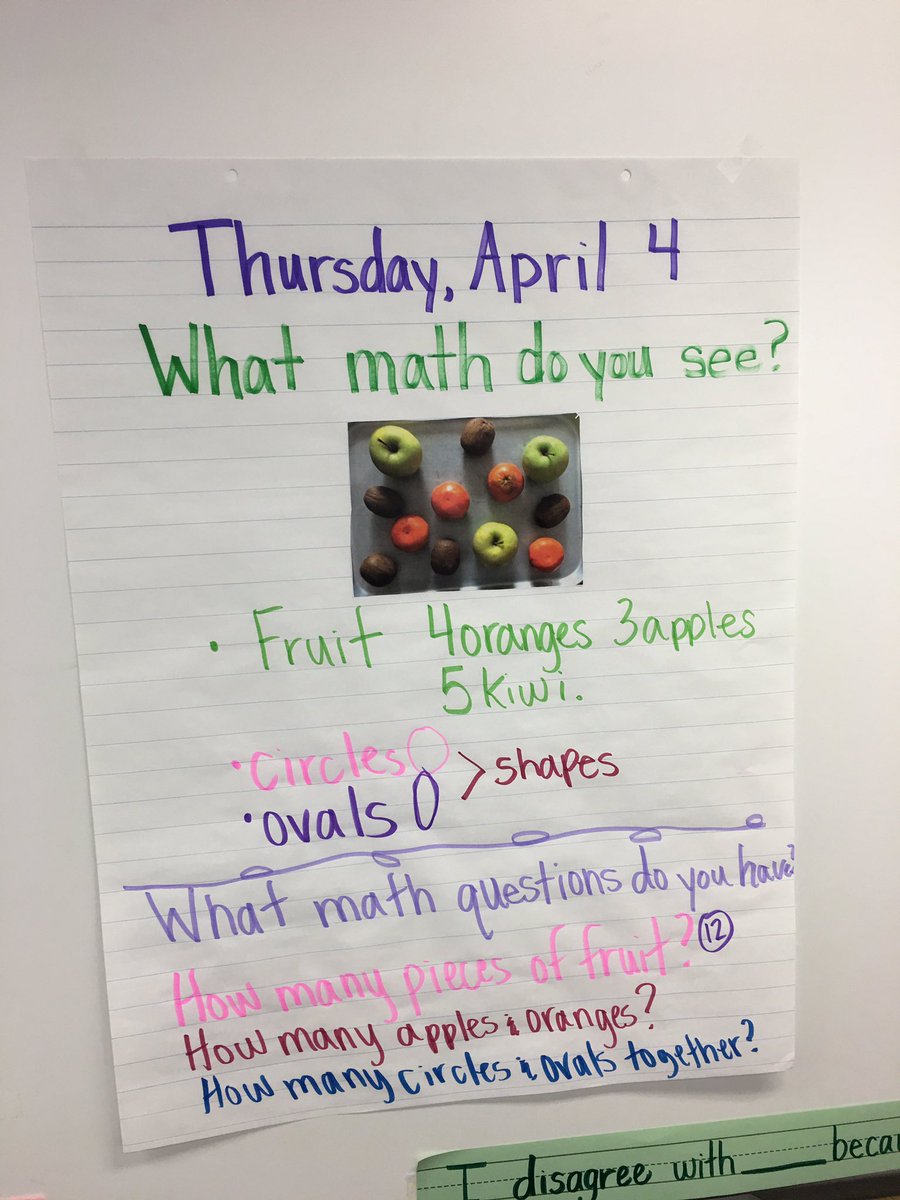 Thursday, April 4
What math do you see?
• Fruit 4 oranges 3 apples
5 kiwi.
• circles
> shapes
• ovals
What math questions do you have?
How many pieces of fruit? 12
How many apples & oranges?
How many circles & ovals together?
I disagree with ____ becau